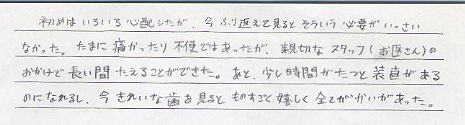 初めは いろいろ 心配したが、今 ふり返えて見ると そういう 必要が いっさい
なかった。たまに 痛かったり 不便ではあったが、親切な スタッフ(お医さん)の
おかげで 長い間 たえることができた。あと、少し時間がたつと 装直がある
のになれるし、今 きれいな歯を見ると ものすごく嬉しく 全てがかいがあった。